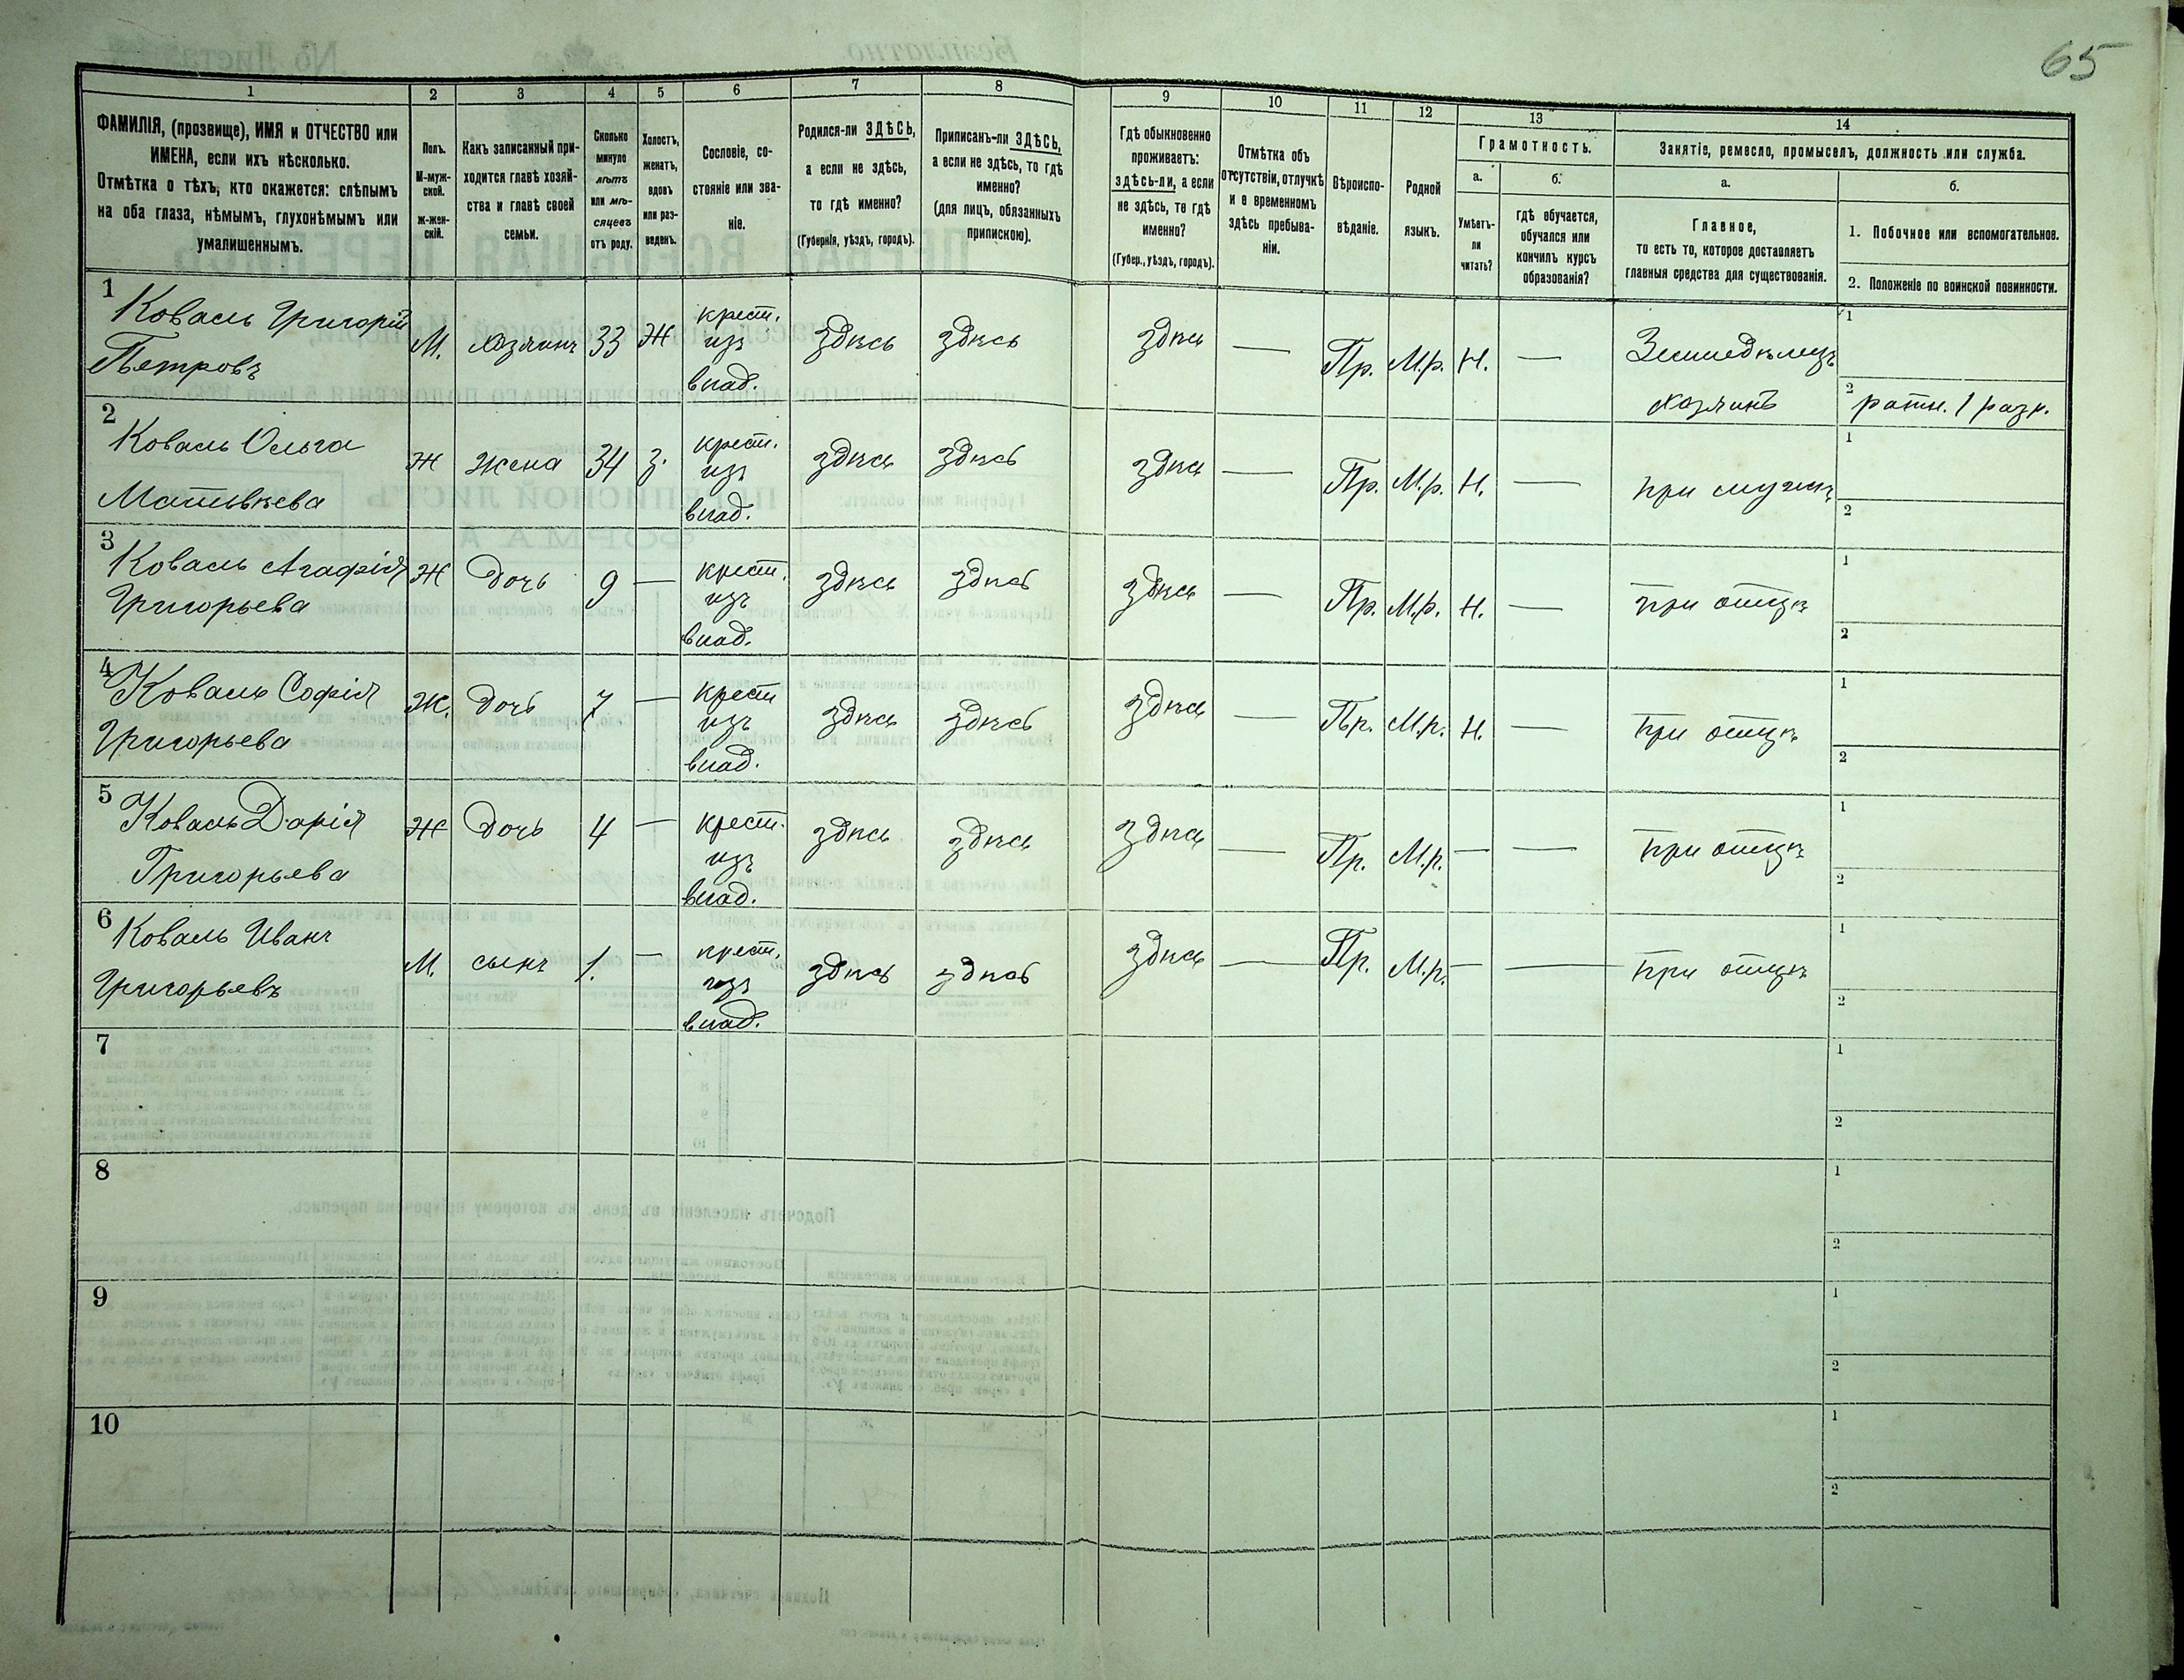 65
1 2 3 4 5 6 7 8 9 10 11 12 13 14
ФАМИЛІЯ, (прозвище), ИМЯ и ОТЧЕСТВО или
ИМЕНА, если ихъ нѣсколько.
Отмѣтка о тѣхъ, кто окажется: слѣпымъ
на оба глаза, нѣмымъ, глухонѣмымъ или
умалишеннымъ.
Полъ.
М-муж-
ской.
ж-жен-
скій.
Какъ записанный при-
ходится главѣ хозяй-
ства и главѣ своей
семьи.
Сколько
минуло
лѣтъ
или мѣ-
сяцевъ
отъ роду.
Холостъ,
женатъ,
вдовъ
или раз-
веденъ.
Сословіе, со-
стояніе или зва-
ніе.
Родился-ли ЗДѢСЬ,
а если не здѣсь,
то гдѣ именно?
(Губернія, уѣздъ, городъ).
Приписанъ-ли ЗДѢСЬ,
а если не здѣсь, то гдѣ
именно?
(для лицъ, обязанныхъ
припискою).
Гдѣ обыкновенно
проживаетъ:
здѣсь-ли, а если
не здѣсь, то гдѣ
именно?
(Губер., уѣздъ, городъ).
Отмѣтка объ
отсутствіи, отлучкѣ
и о временномъ
здѣсь пребыва-
ніи.
Вѣроиспо-
вѣданіе.
Родной
языкъ.
Грамотность.
а.
Умѣетъ-
ли
читать?
б.
Гдѣ обучается,
обучался или
кончилъ курсъ
образованія?
Занятіе, ремесло, промыселъ, должность или служба.
а.
Главное,
то есть то, которое доставляетъ
главныя средства для существованія.
б.
1. Побочное или вспомогательное.
2. Положеніе по воинской повинности.
1
Коваль Григорій
Петровъ
М. хозяинъ 33 Ж
крест.
изъ
влад.
здѣсь здѣсь здѣсь — Пр. М.р. Н. —
Земледѣлецъ
хозяинъ
1
2 ратн. 1 разр.
2
Коваль Ольга
Матвѣева
Ж жена 34 З.
крест.
изъ
влад.
здѣсь здѣсь здѣсь — Пр. М.р. Н. — при мужѣ
1
2
3
Коваль Агафія
Григорьева
Ж дочь 9 —
крест.
изъ
влад.
здѣсь здѣсь здѣсь — Пр. М.р. Н. — при отцѣ
1
2
4
Коваль Софія
Григорьева
Ж. дочь 7 —
крест
изъ
влад.
здѣсь здѣсь здѣсь — Пр. М.р. Н. — при отцѣ
1
2
5
Коваль Дарія
Григорьева
Ж дочь 4 —
крест.
изъ
влад.
здѣсь здѣсь здѣсь — Пр. М.р. — — при отцѣ
1
2
6
Коваль Иванъ
Григорьевъ
М. сынъ 1. —
крест.
изъ
влад.
здѣсь здѣсь здѣсь — Пр. М.р. — — при отцѣ
1
2
7
1
2
8
1
2
9
1
2
10
1
2